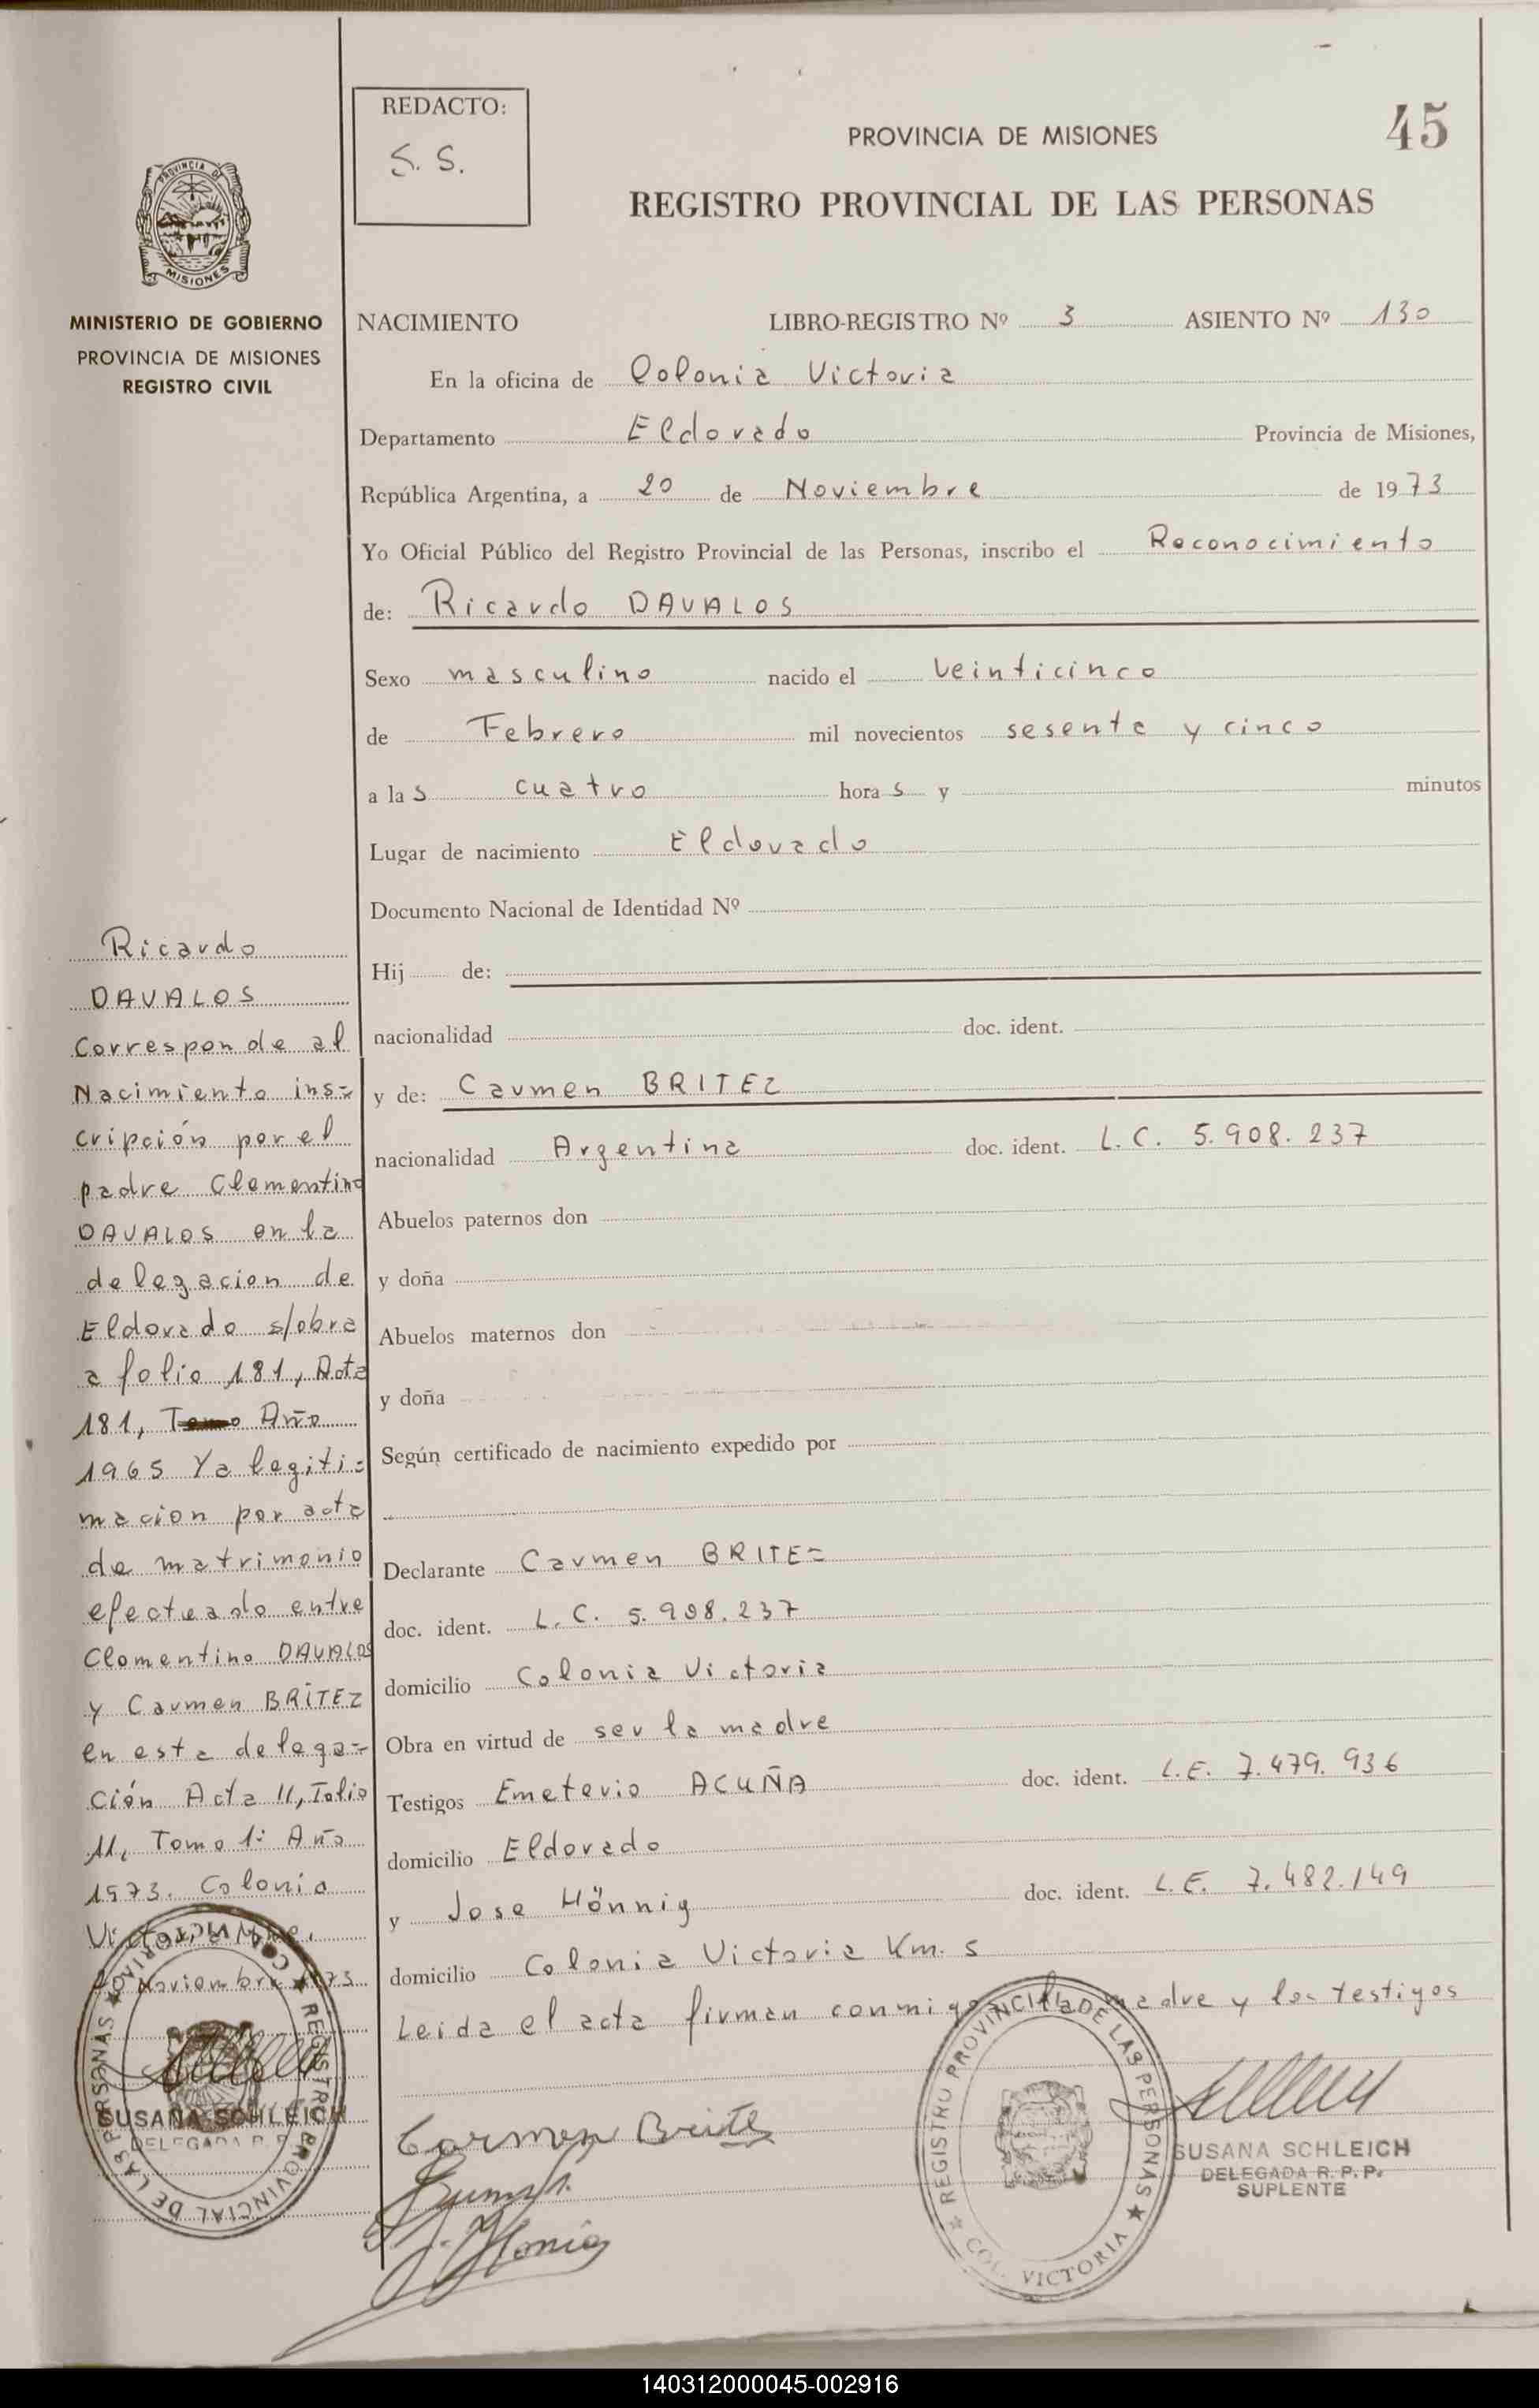 REDACTO:
S. S.
PROVINCIA DE MISIONES
45
REGISTRO PROVINCIAL DE LAS PERSONAS
PROVINCIA DE
MISIONES
MINISTERIO DE GOBIERNO
PROVINCIA DE MISIONES
REGISTRO CIVIL
NACIMIENTO LIBRO-REGISTRO Nº 3 ASIENTO Nº 130
En la oficina de Colonia Victoria
Departamento Eldorado Provincia de Misiones,
República Argentina, a 20 de Noviembre de 1973
Yo Oficial Público del Registro Provincial de las Personas, inscribo el Reconocimiento
de: Ricardo DAVALOS
Sexo masculino nacido el veinticinco
de Febrero mil novecientos sesenta y cinco
a las cuatro horas y minutos
Lugar de nacimiento Eldorado
Documento Nacional de Identidad Nº
Hij de:
nacionalidad doc. ident.
y de: Carmen BRITEZ
nacionalidad Argentina doc. ident. L.C. 5.908.237
Abuelos paternos don
y doña
Abuelos maternos don
y doña
Según certificado de nacimiento expedido por
Declarante Carmen BRITEZ
doc. ident. L.C. 5.908.237
domicilio Colonia Victoria
Obra en virtud de ser la madre
Testigos Emeterio ACUÑA doc. ident. L.E. 7.479.936
domicilio Eldorado
y Jose Hönnig doc. ident. L.E. 7.482.149
domicilio Colonia Victoria Km. 5
Leida el acta firman conmigo la madre y los testigos
Carmen Brite
SUSANA SCHLEICH
DELEGADA R. P. P.
SUPLENTE
★ REGISTRO PROVINCIAL DE LAS PERSONAS ★
COL. VICTORIA
Ricardo
DAVALOS
Corresponde al
Nacimiento ins=
cripción por el
padre Clementino
DAVALOS en la
delegacion de
Eldorado s/obra
a folio 181, Acta
181, Tomo Año
1965 Ya legiti=
macion por acta
de matrimonio
efectuado entre
Clementino DAVALOS
y Carmen BRITEZ
en esta delega=
ción Acta 11, Folio
11, Tomo 1º Año
1973. Colonia
Noviembre 1973
SUSANA SCHLEICH
DELEGADA R. P. P.
★ REGISTRO PROVINCIAL DE LAS PERSONAS ★
COL. VICTORIA
140312000045-002916